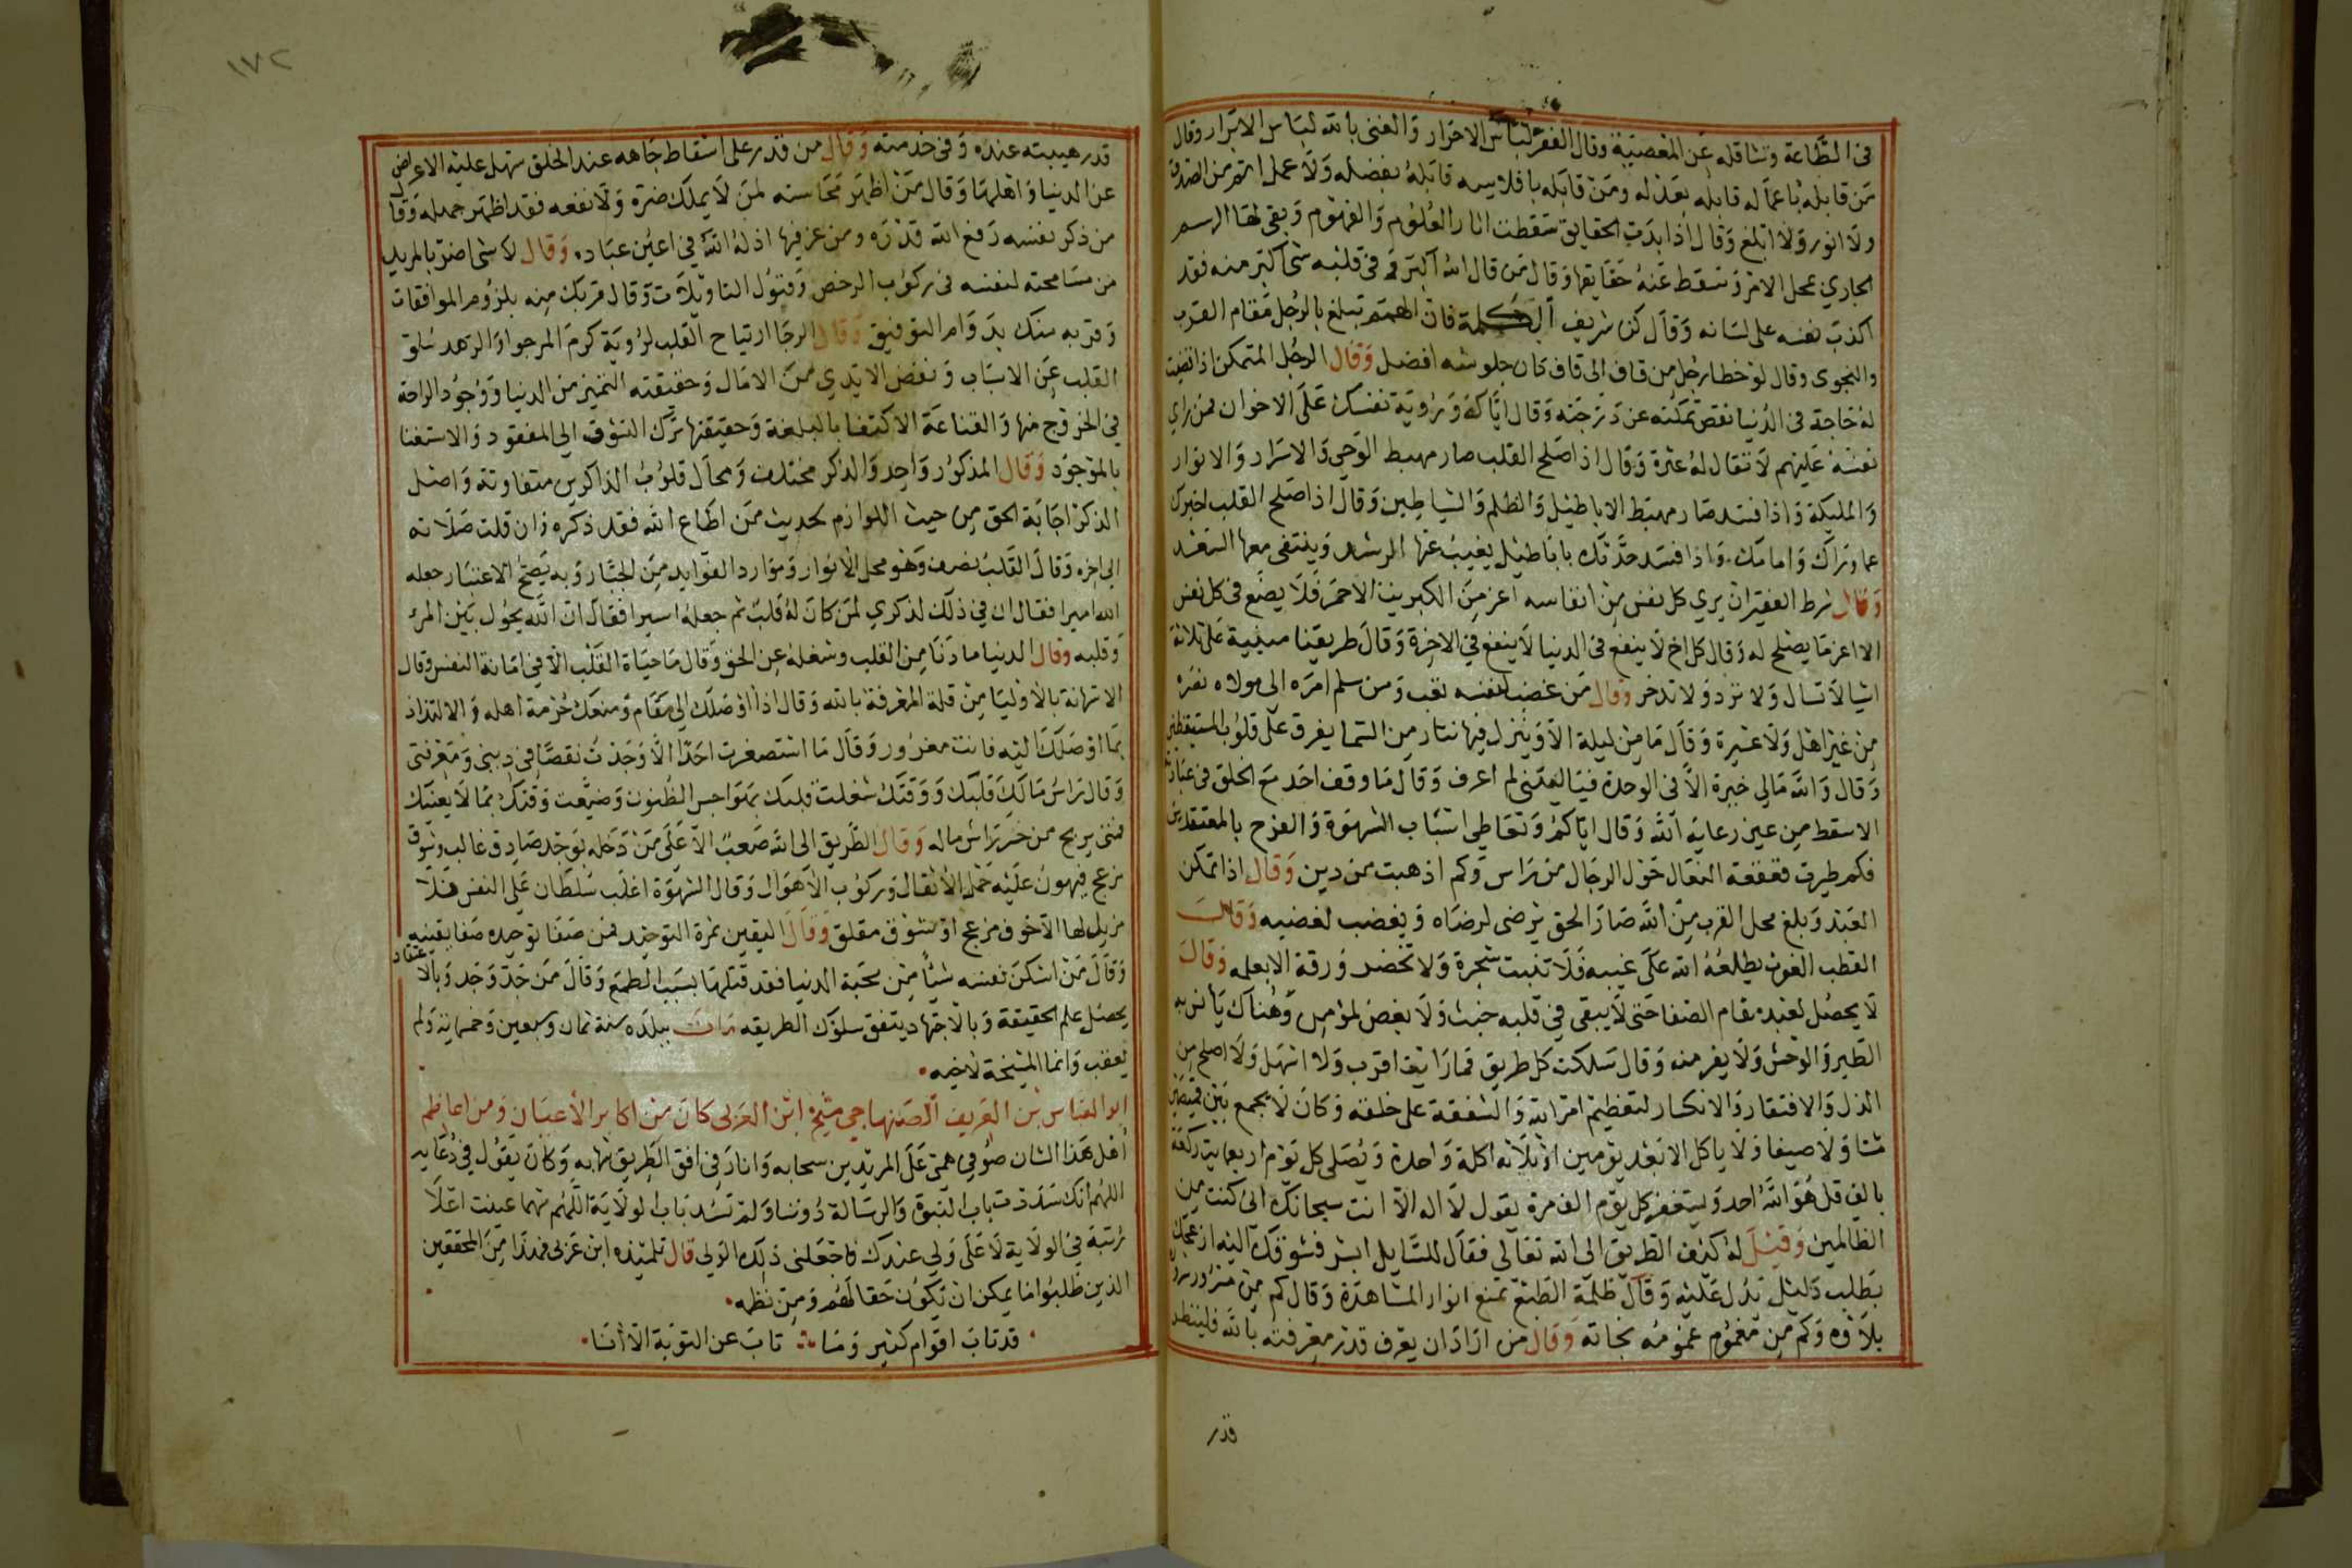 في الطاعة وتثاقله عن المعصية وقال الفقر لباس الاحرار والغنى بالله لباس الابرار وقال
من قابله باعماله قابله بعدله ومن قابله بافلاسه قابله بفضله ولا عمل اتم من الصدق
ولا انور ولا ابلغ وقال اذا بدت الحقايق سقطت اثار العلوم والفهوم وبقى لها الرسم
الجاري بمحل الامر وتسقط عنه حقايقها وقال من قال الله اكبر وفي قلبه شئ اكبر منه فقد
اكذب نفسه على لسانه وقال كن شريف الهمة فان الهمم تبلغ بالرجل مقام القرب
والنجوى وقال لو خطا رجل من قاف الى قاف كان جلوسه افضل وقال الرجل المتمكن اذا نصبت
له حاجة في الدنيا نقص تمكنه عن درجته وقال اياك ورؤية نفسك على الاخوان فمن راى
نفسه عليهم لا تقال له عثرة وقال اذا صلح القلب صار مهبط الوحي والاسرار والانوار
والمليكة واذا فسد صار مهبط الاباطيل والظلم والشياطين وقال اذا صلح القلب اخبرك
عما وراك وامامك واذا فسد حدثك باباطيل يغيب عنها الرشد وينتفى معها السعد
وقال شرط الفقير ان يرى كل نفس من انفاسه اعز من الكبريت الاحمر فلا يضع في كل نفس
الا اعز ما يصلح له وقال كل اخ لا ينفع في الدنيا لا ينفع في الاخرة وقال طريقنا مبنية على ثلاثة
اشيا لا تسال ولا ترد ولا تدخر وقال من غضب لنفسه تعب ومن سلم امره الى مولاه نصره
من غير اهل ولا عشيرة وقال ما من ليلة الا وينزل فيها نثار من السما يفرق على قلوب المستيقظين
وقال والله مالي خبرة الا في الوحدة فياليتني لم اعرف وقال ما وقف احد مع الخلق في عبادته
الا سقط من عين رعاية الله وقال اياكم وتعاطي اسباب الشهوة والفرح بالمعتقدين
فكم طيرت قعقعة النعال حول الرجال من راس وكم اذهبت من دين وقال اذا تمكن
العبد وبلغ محل القرب من الله صار الحق يرضى لرضاه ويغضب لغضبه وقال
القطب الغوث يطلعه الله على غيبه فلا تنبت شجرة ولا تخضر ورقة الا بعلمه وقال
لا يحصل لعبد مقام الصفا حتى لا يبقى في قلبه خبث ولا بغض لمؤمن وهناك يانس به
الطير والوحش ولا يفر منه وقال سلكت كل طريق فما رايت اقرب ولا اسهل ولا اصلح من
الذل والافتقار والانكسار لتعظيم امر الله والشفقة على خلقه وكان لا يجمع بين قميصين
شتا ولا صيفا ولا ياكل الا بعد يومين او ثلاثه اكلة واحدة ويصلى كل يوم اربعماية ركعة
بالف قل هو الله احد ويستغفر كل يوم الف مرة يقول لا اله الا انت سبحانك انى كنت من
الظالمين وقيل له كيف الطريق الى الله تعالى فقال للسايل ابشر فشوقك اليه ازعجك
بطلب دليل يدل عليه وقال ظلمة الطبع تمنع انوار المشاهدة وقال كم من مسرور سروره
بلاؤه وكم من مغموم غمومه نجاته وقال من اراد ان يعرف قدر معرفته بالله فلينظر
قدر
١٧٢
قدر هيبته عنده وفي خدمته وقال من قدر على اسقاط جاهه عند الخلق سهل عليه الاعراض
عن الدنيا واهلها وقال من اظهر محاسنه لمن لا يملك ضره ولا نفعه فقد اظهر جهله وقال
من ذكر نفسه رفع الله قدره ومن عز فيها اذله الله في اعين عباده وقال لا شئ اضر بالمريد
من مسامحته لنفسه في ركوب الرخص وقبول التاويلات وقال قربك منه بلزوم الموافقات
وقربه منك بدوام التوفيق وقال الرجا ارتياح القلب لرؤية كرم المرجو والزهد سلو
القلب عن الاسباب ونفض الايدي من الامال وحقيقته التميز من الدنيا ووجود الراحة
في الخروج منها والقناعة الاكتفا بالبلغة وحقيقتها ترك التشوق الى المفقود والاستغنا
بالموجود وقال المذكور واحد والذكر مختلف ومحال قلوب الذاكرين متفاوتة واصل
الذكر اجابة الحق من حيث اللوازم لحديث من اطاع الله فقد ذكره وان قلت صلاته
الى اخره وقال القلب يصرف وهو محل الانوار وموارد الفوايد من الجبار وبه يصح الاعتبار جعله
الله اميرا فقال ان في ذلك لذكري لمن كان له قلب ثم جعله اسيرا فقال ان الله يحول بين المرء
وقلبه وقال الدنيا ما دنا من القلب وشغله عن الحق وقال ما حياة القلب الا في اماتة النفس وقال
الاستهانة بالاوليا من قلة المعرفة بالله وقال اذا اوصلك الى مقام ومنعك حرمة اهله والالتذاذ
بما اوصلك اليه فانت مغرور وقال ما استصغرت احدا الا وجدت نقصا في ديني ومعرفتي
وقال راس مالك قلبك ووقتك شغلت قلبك بهواجس الظنون وضيعت وقتك بما لا يعنيك
فمتى يربح من خسر راس ماله وقال الطريق الى الله صعب الا على من دخله بوجد صادق غالب وشوق
مزعج فيهون عليه حمل الاثقال وركوب الاهوال وقال الشهوة اغلب سلطان على النفس فلا
مزيل لها الا خوف مزعج او شوق مقلق وقال اليقين ثمرة التوحيد فمن صفا توحيده صفا يقينه
وقال من اسكن نفسه شيا من محبة الدنيا فقد قتلها بسيف الطمع وقال من جد وجد وبالاعتقاد
يحصل علم الحقيقة وبالاجتهاد يتفق سلوك الطريقه مات ببلده سنة ثمان وسبعين وخمسماية ولم
يعقب وانما المشيخة لاخيه
ابو العباس بن العريف الصنهاجي شيخ ابن العربى كان من اكابر الاعيان ومن اعاظم
اهل هذا الشان صوفي همى على المريدين سحابه وانار في افق الطريق شهابه وكان يقول في دعايه
اللهم انك سددت باب النبوة والرسالة دوننا ولم تسد باب الولاية اللهم مهما عينت اعلا
رتبة في الولاية لاعلى ولي عندك فاجعلنى ذلك الولي قال تلميذه ابن عربى فهذا من المحققين
الذين طلبوا ما يمكن ان يكون حقا لهم ومن نظمه
قد تاب اقوام كثير وما ∴ تاب عن التوبة الا انا